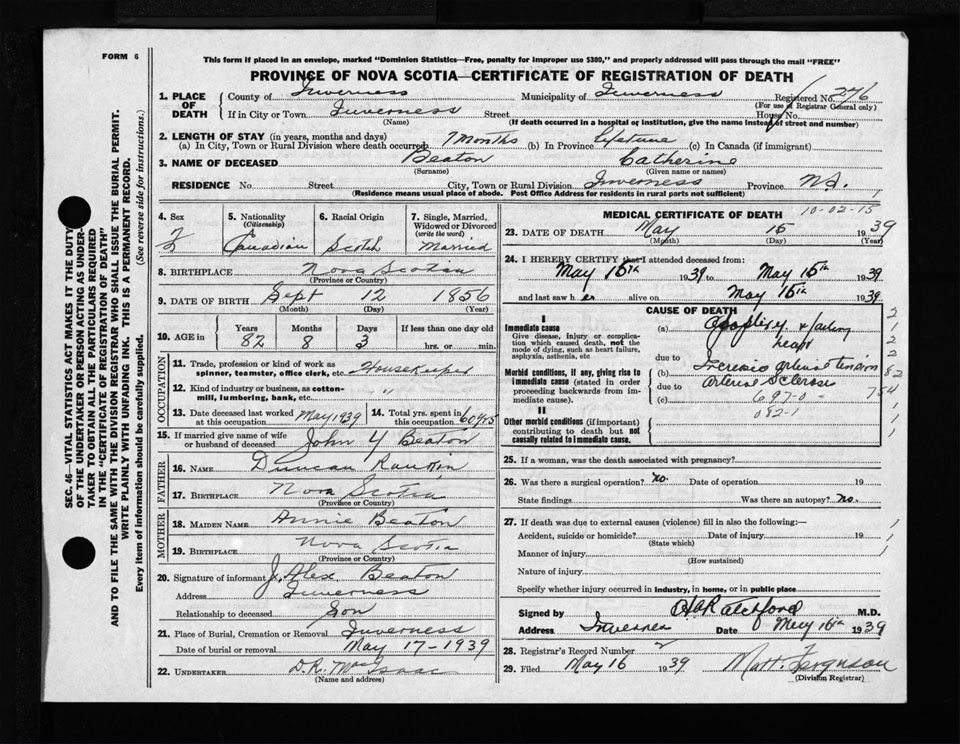 FORM 6
This form if placed in an envelope, marked "Dominion Statistics—Free, penalty for improper use $300," and properly addressed will pass through the mail "FREE"
PROVINCE OF NOVA SCOTIA—CERTIFICATE OF REGISTRATION OF DEATH
1. PLACE OF DEATH
County of Inverness Municipality of Inverness Registered No. 276
(For use of Registrar General only)
If in City or Town Inverness Street House No.
(Name) (If death occurred in a hospital or institution, give the name instead of street and number)
2. LENGTH OF STAY (in years, months and days)
(a) In City, Town or Rural Division where death occurred 7 Months (b) In Province Lifetime (c) In Canada (if immigrant)
3. NAME OF DECEASED Beaton Catherine
(Surname) (Given name or names)
RESIDENCE No. Street City, Town or Rural Division Inverness Province N.S.
(Residence means usual place of abode. Post Office Address for residents in rural parts not sufficient)
SEC. 46—VITAL STATISTICS ACT MAKES IT THE DUTY
OF THE UNDERTAKER OR PERSON ACTING AS UNDER-
TAKER TO OBTAIN ALL THE PARTICULARS REQUIRED
IN THE "CERTIFICATE OF REGISTRATION OF DEATH"
AND TO FILE THE SAME WITH THE DIVISION REGISTRAR WHO SHALL ISSUE THE BURIAL PERMIT.
WRITE PLAINLY WITH UNFADING INK. THIS IS A PERMANENT RECORD.
Every item of information should be carefully supplied. (See reverse side for instructions.)
4. Sex F
5. Nationality (Citizenship) Canadian
6. Racial Origin Scotch
7. Single, Married, Widowed or Divorced (write the word) Married
8. BIRTHPLACE Nova Scotia
(Province or Country)
9. DATE OF BIRTH Sept 12 1856
(Month) (Day) (Year)
10. AGE in Years 82 Months 8 Days 3 If less than one day old hrs. or min.
OCCUPATION
11. Trade, profession or kind of work as spinner, teamster, office clerk, etc. Housekeeper
12. Kind of industry or business, as cotton-mill, lumbering, bank, etc. "
13. Date deceased last worked at this occupation May 1939
14. Total yrs. spent in this occupation 60 yrs
15. If married give name of wife or husband of deceased John Y Beaton
FATHER
16. NAME Duncan Rankin
17. BIRTHPLACE Nova Scotia
(Province or Country)
MOTHER
18. MAIDEN NAME Annie Beaton
19. BIRTHPLACE Nova Scotia
(Province or Country)
20. Signature of informant J. Alex Beaton
Address Inverness
Relationship to deceased Son
21. Place of Burial, Cremation or Removal Inverness
Date of burial or removal May 17-1939
22. UNDERTAKER D.R. MacIsaac
(Name and address)
MEDICAL CERTIFICATE OF DEATH
10-02-15
23. DATE OF DEATH May 15 1939
(Month) (Day) (Year)
24. I HEREBY CERTIFY that I attended deceased from:
May 15th 1939 to May 15th 1939
and last saw her alive on May 15th 1939
CAUSE OF DEATH
I
Immediate cause
Give disease, injury or complication which caused death, not the mode of dying, such as heart failure, asphyxia, asthenia, etc
(a) & failing heart
due to
Morbid conditions, if any, giving rise to immediate cause (stated in order proceeding backwards from immediate cause)
(b) arterial tension
due to Arterial Sclerosis
(c) 697-0
082-1
II
Other morbid conditions (if important) contributing to death but not causally related to immediate cause.
25. If a woman, was the death associated with pregnancy?
26. Was there a surgical operation? no. Date of operation 19
State findings Was there an autopsy? no.
27. If death was due to external causes (violence) fill in also the following:—
Accident, suicide or homicide? Date of injury 19
(State which)
Manner of injury
(How sustained)
Nature of injury
Specify whether injury occurred in industry, in home, or in public place
Signed by Ratchford M.D.
Address Inverness Date May 16th 1939
28. Registrar's Record Number
29. Filed May 16 1939 Matt. Ferguson
(Division Registrar)